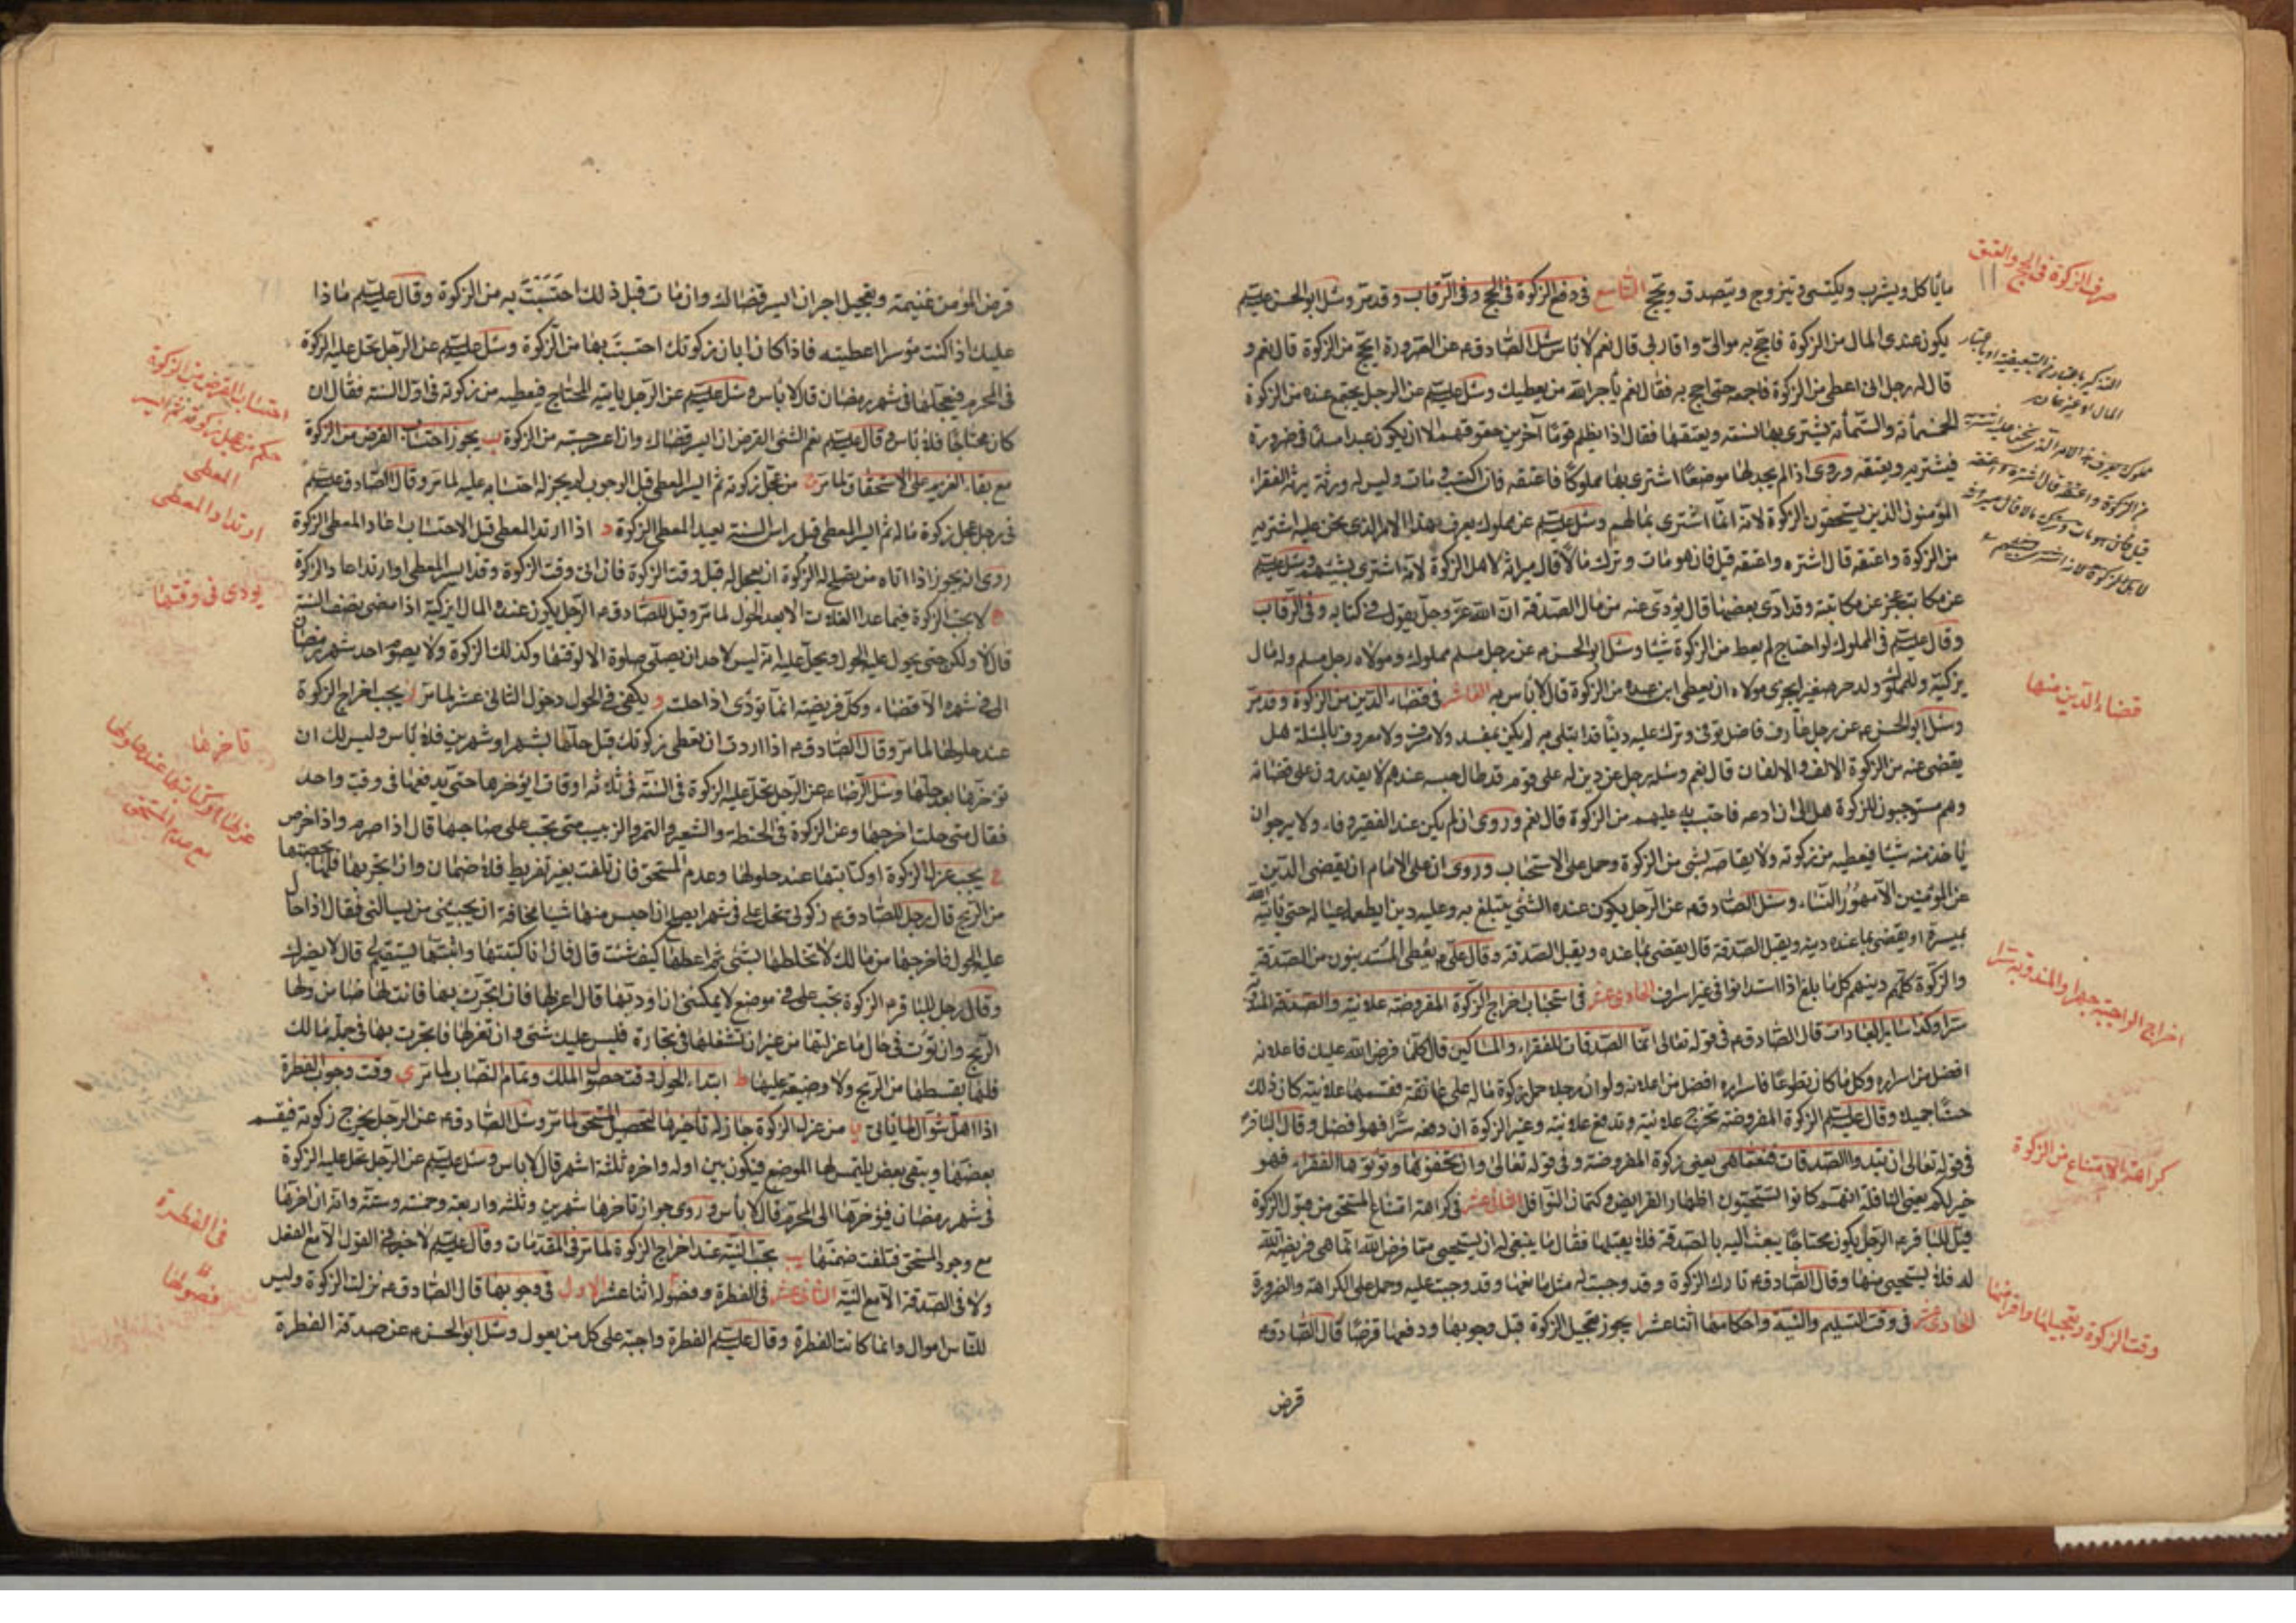 ما يأكل ويشرب ويكتسى ويتزوج ويتصدق ويحج التاسع فى دفع الزكوة فى الحج وفى الرقاب وقد مر وسئل ابو الحسن عليه السلم
يكون عندى المال من الزكوة فاحج به موالى واقاربى قال نعم لا باس سئل الصادق ع عن الصرورة ايحج من الزكوة قال نعم و
قال له رجل انى اعطى من الزكوة فاجمعه حتى احج به فقال نعم يأجر الله من يعطيك وسئل عليه السلم عن الرجل يجتمع عنده من الزكوة
الخمسمأة والستمأة يشترى بها نسمة ويعتقها فقال اذا يظلم قوما آخرين حقوقهم الا ان يكون عبدا مسلما فى ضرورة
فيشتريه ويعتقه وروى اذا لم يجد لها موضعا اشترى بها مملوكا فاعتقه فان اكتسب ومات وليس له ورثة يرثه الفقراء
المؤمنون الذين يستحقون الزكوة لانه انما اشترى بمالهم وسئل عليه السلم عن مملوك يعرف هذا الامر الذى نحن عليه اشتريه
من الزكوة واعتقه قال اشتره واعتقه قيل فان هو مات وترك مالا قال ميراثه لاهل الزكوة لانه اشترى بسهمهم وسئل عليه السلم
عن مكاتب عجز عن مكاتبته وقد ادى بعضها قال يؤدى عنه من مال الصدقة ان الله عز وجل يقول فى كتابه وفى الرقاب
وقال عليه السلم فى المملوك لو احتاج لم يعط من الزكوة شيئا وسئل ابو الحسن ع عن رجل مسلم مملوك ومولاه رجل مسلم وله مال
يزكيه وللمملوك ولد حر صغير ايجزى مولاه ان يعطى ابن عبده من الزكوة قال لا باس به العاشر فى قضاء الدين من الزكوة وقد مر
وسئل ابو الحسن ع عن رجل عارف فاضل توفى وترك عليه دينا قد ابتلى به لم يكن بمفسد ولا مسرف ولا معروف بالمسئلة هل
يقضى عنه من الزكوة الالف والالفان قال نعم وسئله رجل عن دين له على قوم قد طال حبسه عندهم لا يقدرون على قضائه
وهم مستوجبون للزكوة هل لى ان ادعه فاحتسب به عليهم من الزكوة قال نعم وروى ان لم يكن عند الفقير وفاء ولا يرجو ان
ياخذ منه شيئا فيعطيه من زكوته ولا يقاصه بشئ من الزكوة وحمل على الاستحباب وروى ان على الامام ان يقضى الدين
عن المؤمنين الا مهور النساء وسئل الصادق ع عن الرجل يكون عنده الشئ يتبلغ به وعليه دين ايطعمه عياله حتى ياتيه الله
بميسرة او يقضى بما عنده دينه ويقبل الصدقة قال يقضى بما عنده ويقبل الصدقة وقال على ع يعطى المستدينون من الصدقة
والزكوة كلهم دينهم كل ما بلغ اذا استدانوا فى غير اسراف الحادى عشر فى استحباب اخراج الزكوة المفروضة علانية والصدقة المندوبة
سرا وكذا سائر العبادات قال الصادق ع فى قوله تعالى انما الصدقات للفقراء والمساكين قال كلما فرض الله عليك فاعلانه
افضل من اسراره وكل ما كان تطوعا فاسراره افضل من اعلانه ولو ان رجلا حمل زكوة ماله على عاتقه فقسمها علانية كان ذلك
حسنا جميلا وقال عليه السلم الزكوة المفروضة تخرج علانية وتدفع علانية وغير الزكوة ان دفعه سرا فهو افضل وقال الباقر ع
فى قوله تعالى ان تبدوا الصدقات فنعما هى يعنى زكوة المفروضة وفى قوله تعالى وان تخفوها وتؤتوها الفقراء فهو
خير لكم يعنى النافلة انهم كانوا يستحبون اظهار الفرايض وكتمان النوافل الثانى عشر فى كراهة امتناع المستحق من قبول الزكوة
قيل للباقر ع الرجل يكون محتاجا يبعث اليه بالصدقة فلا يقبلها فقال ما ينبغى له ان يستحيى مما فرض الله انما هى فريضة الله
له فلا يستحيى منها وقال الصادق ع تارك الزكوة وقد وجبت له مثل مانعها وقد وجبت عليه وحمل على الكراهة والضرورة
الحادى عشر فى وقت التسليم والنية واحكامها اثنا عشر ا يجوز تعجيل الزكوة قبل وجوبها ودفعها قرضا قال الصادق ع
قرض
صرف الزكوة فى الحج والعتق
قضاء الدين منها
اخراج الواجبة جهرا والمندوبة سرا
كراهة الامتناع من الزكوة
وقت الزكوة وتعجيلها واقراضها
قرض المؤمن غنيمة وتعجيل اجر ان ايسر قضاك وان مات قبل ذلك احتسبت به من الزكوة وقال عليه السلم ماذا
عليك اذا كنت مؤسرا اعطيته فاذا كان ابان زكوتك احتسبت بها من الزكوة وسئل عليه السلم عن الرجل تحل عليه الزكوة
فى المحرم فيعجلها فى شهر رمضان قال لا باس وسئل عليه السلم عن الرجل ياتيه المحتاج فيعطيه من زكوته فى اول السنة فقال ان
كان محتاجا فلا باس وقال عليه السلم نعم الشئ القرض ان ايسر قضاك وان اعسر حسبته من الزكوة ب يجوز احتساب القرض من الزكوة
مع بقاء الغريم على الاستحقاق لما مر ج من عجل زكوته ثم ايسر المعطى قبل الوجوب لم يجز له احتسابه عليه لما مر وقال الصادق عليه السلم
فى رجل عجل زكوة ماله ثم ايسر المعطى قبل راس السنة يعيد المعطى الزكوة د اذا ارتد المعطى قبل الاحتساب اعاد المعطى الزكوة
روى انه يجوز اذا اتاه من يصلح له الزكوة ان يعجل له قبل وقت الزكوة فان اتى وقت الزكوة وقد ايسر المعطى او ارتد اعاد الزكوة
ه لا يجب الزكوة فيما عدا الغلات الا بعد الحول لما مر وقيل للصادق ع الرجل يكون عنده المال ايزكيه اذا مضى نصف السنة
قال لا ولكن حتى يحول عليه الحول ويحل عليه انه ليس لاحد ان يصلى صلوة الا لوقتها وكذلك الزكوة ولا يصوم احد شهر رمضان
الا فى شهره الا قضاء وكل فريضة انما تؤدى اذا حلت و يكفى فى الحول دخول الثانى عشر لما مر ز يجب اخراج الزكوة
عند حلولها لما مر وقال الصادق ع اذا اردت ان تعطى زكوتك قبل حلها بشهر او شهرين فلا باس وليس لك ان
تؤخرها بعد حلها وسئل الرضا ع عن الرجل تحل عليه الزكوة فى السنة فى ثلاثة اوقات ايؤخرها حتى يدفعها فى وقت واحد
فقال متى حلت اخرجها وعن الزكوة فى الحنطة والشعير والتمر والزبيب متى تجب على صاحبها قال اذا صرم واذا خرص
ح يجب عزل الزكوة او كتابتها عند حلولها وعدم المستحق فان تلفت بغير تفريط فلا ضمان وان اتجر بها فلها بحصتها
من الربح قال رجل للصادق ع زكوتى تحل على فى شهر ايصلح ان احبس منها شيئا مخافة ان يجيئنى من يسألنى فقال اذا حال
عليه الحول فاخرجها من مالك لا تخلطها بشئ ثم اعطها كيف شئت قال فان انا كتبتها واثبتها يستقيم لى قال لا يضرك
وقال رجل للباقر ع الزكوة تجب على فى موضع لا يمكننى ان اؤديها قال اعزلها فان اتجرت بها فانت لها ضامن ولها
الربح وان تويت فى حال ما عزلتها من غير ان تشغلها فى تجارة فليس عليك شئ وان لم تعزلها فاتجرت بها فى جملة مالك
فلها بقسطها من الربح ولا وضيعة عليها ط ابتداء الحول وقت حصول الملك وتمام النصاب لما مر ى وقت وجوب الفطرة
اذا اهل شوال لما ياتى يا من عزل الزكوة جاز له تاخيرها لتحصيل المستحق لما مر وسئل الصادق ع عن الرجل يخرج زكوته فيقسم
بعضها ويبقى بعض يلتمس لها الموضع فيكون بين اوله واخره ثلثة اشهر قال لا باس وسئل عليه السلم عن الرجل تحل عليه الزكوة
فى شهر رمضان فيؤخرها الى المحرم قال لا بأس وروى جواز تاخرها شهرين وثلثة واربعة وخمسة وستة وانه ان اخرها
مع وجود المستحق فتلفت ضمنها يب تجب النية عند اخراج الزكوة لما مر فى المقدمات وقال عليه السلم لا خير فى القول الا مع الفعل
ولا فى الصدقة الا مع النية الثانى عشر فى الفطرة وفصوله اثنا عشر الاول فى وجوبها قال الصادق ع نزلت الزكوة وليس
للناس اموال وانما كانت الفطرة وقال عليه السلم الفطرة واجبة على كل من يعول وسئل ابو الحسن ع عن صدقة الفطرة
احتساب القرض من الزكوة
حكم من عجل زكوته ثم ايسر
المعطى
ارتداد المعطى
يؤدى فى وقتها
تاخرها
عزلها او كتابتها عند حلولها
مع عدم المستحق
فى الفطرة
فصولها